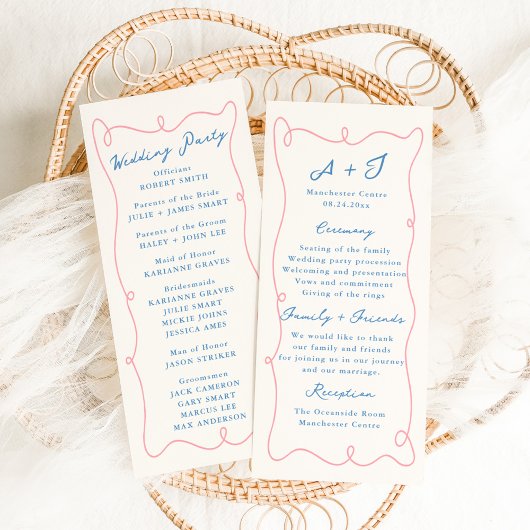 Wedding Party
Officiant
ROBERT SMITH
Parents of the Bride
JULIE + JAMES SMART
Parents of the Groom
HALEY + JOHN LEE
Maid of Honor
KARIANNE GRAVES
Bridesmaids
KARIANNE GRAVES
JULIE SMART
MICKIE JOHNS
JESSICA AMES
Man of Honor
JASON STRIKER
Groomsmen
JACK CAMERON
GARY SMART
MARCUS LEE
MAX ANDERSON
A + J
Manchester Centre
08.24.20xx
Ceremony
Seating of the family
Wedding party procession
Welcoming and presentation
Vows and commitment
Giving of the rings
Family + Friends
We would like to thank
our family and friends
for joining us in our journey
and our marriage.
Reception
The Oceanside Room
Manchester Centre